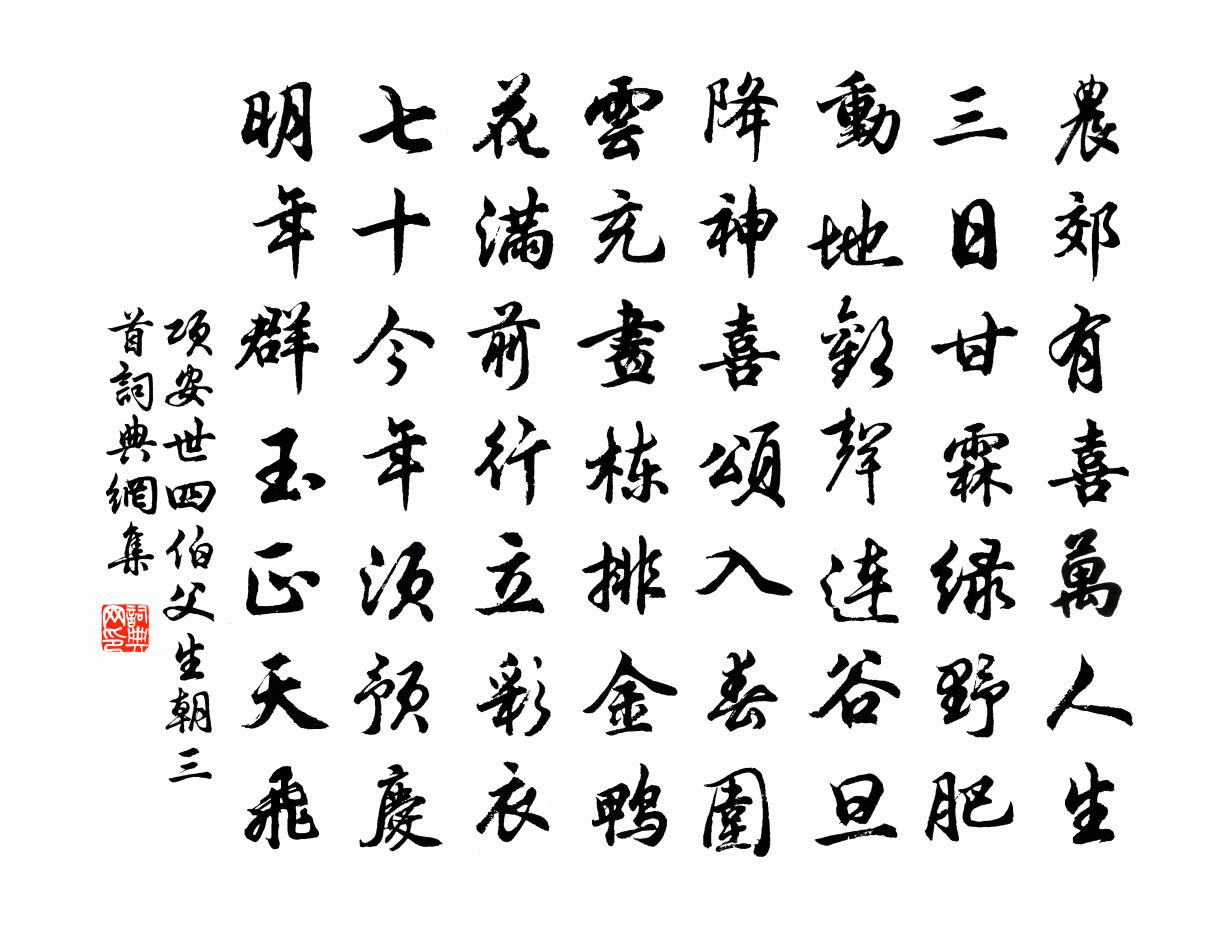 農郊有喜萬人生
三日甘霖绿野肥
動地歡聲連谷旦
降神喜頌入春圍
雲充畫栋排金鸭
花滿前行立彩衣
七十今年须预慶
明年群玉正天飛
项安世四伯父生朝三
首詞典網集
詞典网印